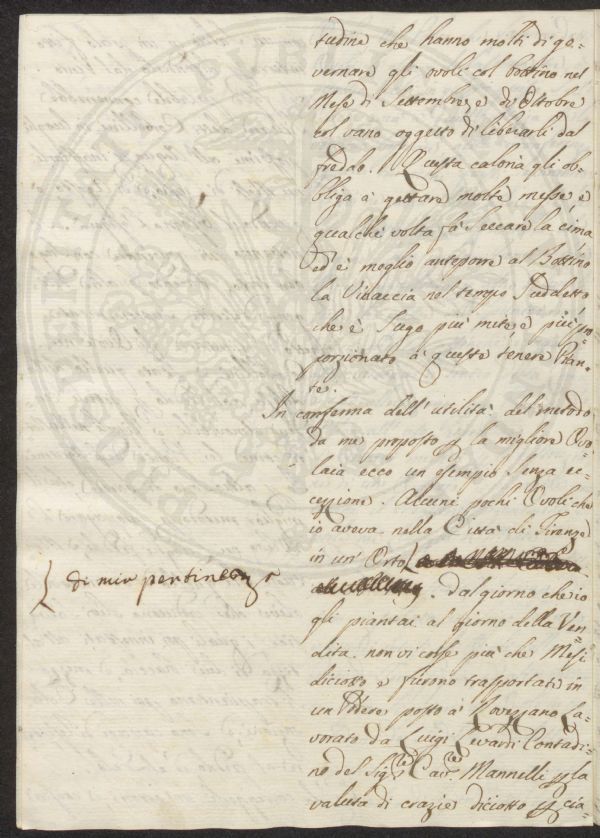 tudine che hanno molti di go-
vernare gli ovoli col bottino nel
Mese di Settembre, e di Ottobre
col vano oggetto di liberarli dal
freddo. Questa caloria gli ob-
bliga à gettare molte messe e
qualche volta fà Seccare la cima
ed è meglio anteporre al Bottino
la Vinaccia nel tempo Suddetto
che è Sugo più mite, e più pro
porzionato à queste tenere Pian-
te.
In conferma dell' utilità del metodo
da me proposto p la migliore Ovo
laia ecco un esempio Senza ec-
cezione. Alcuni pochi Ovoli che
io aveva nella Città di Firenze
in un' Orto
di mia pertinenza
. Dal giorno che io
gli piantai al giorno della Ven
dita non vi corse più che Mesi
diciotto e furono trasportati in
un Podere posto à Rovezzano La-
vorato da Luigi Contadi-
no del Sig.re Cav.re Mannelli p la
valuta di crazie diciotto p cia-